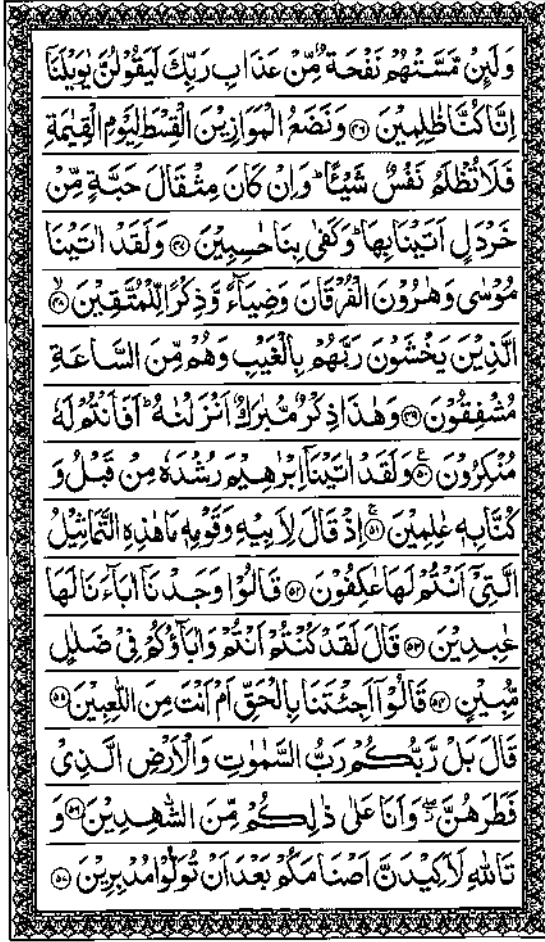 وَلَئِنْ مَّسَّتْهُمْ نَفْحَةٌ مِّنْ عَذَابِ رَبِّكَ لَيَقُوْلُنَّ يٰوَيْلَنَاۤ
اِنَّا كُنَّا ظٰلِمِيْنَ ﴿۴۶﴾ وَنَضَعُ الْمَوَازِيْنَ الْقِسْطَ لِيَوْمِ الْقِيٰمَةِ
فَلَا تُظْلَمُ نَفْسٌ شَيْـًٔا ؕ وَاِنْ كَانَ مِثْقَالَ حَبَّةٍ مِّنْ
خَرْدَلٍ اَتَيْنَا بِهَا ؕ وَكَفٰى بِنَا حٰسِبِيْنَ ﴿۴۷﴾ وَلَقَدْ اٰتَيْنَا
مُوْسٰى وَهٰرُوْنَ الْفُرْقَانَ وَضِيَآءً وَّذِكْرًا لِّلْمُتَّقِيْنَ ﴿۴۸﴾ ۙ
الَّذِيْنَ يَخْشَوْنَ رَبَّهُمْ بِالْغَيْبِ وَهُمْ مِّنَ السَّاعَةِ
مُشْفِقُوْنَ ﴿۴۹﴾ وَهٰذَا ذِكْرٌ مُّبٰرَكٌ اَنْزَلْنٰهُ ؕ اَفَاَنْتُمْ لَهٗ
مُنْكِرُوْنَ ﴿۵۰﴾ ع وَلَقَدْ اٰتَيْنَاۤ اِبْرٰهِيْمَ رُشْدَهٗ مِنْ قَبْلُ وَ
كُنَّا بِهٖ عٰلِمِيْنَ ﴿۵۱﴾ ۚ اِذْ قَالَ لِاَبِيْهِ وَقَوْمِهٖ مَا هٰذِهِ التَّمَاثِيْلُ
الَّتِيْۤ اَنْتُمْ لَهَا عٰكِفُوْنَ ﴿۵۲﴾ قَالُوْا وَجَدْنَاۤ اٰبَآءَنَا لَهَا
عٰبِدِيْنَ ﴿۵۳﴾ قَالَ لَقَدْ كُنْتُمْ اَنْتُمْ وَاٰبَآؤُكُمْ فِيْ ضَلٰلٍ
مُّبِيْنٍ ﴿۵۴﴾ قَالُوْۤا اَجِئْتَنَا بِالْحَقِّ اَمْ اَنْتَ مِنَ اللّٰعِبِيْنَ ﴿۵۵﴾
قَالَ بَلْ رَّبُّكُمْ رَبُّ السَّمٰوٰتِ وَالْاَرْضِ الَّذِيْ
فَطَرَهُنَّ ۖ وَاَنَا عَلٰى ذٰلِكُمْ مِّنَ الشّٰهِدِيْنَ ﴿۵۶﴾ وَ
تَاللّٰهِ لَاَكِيْدَنَّ اَصْنَامَكُمْ بَعْدَ اَنْ تُوَلُّوْا مُدْبِرِيْنَ ﴿۵۷﴾